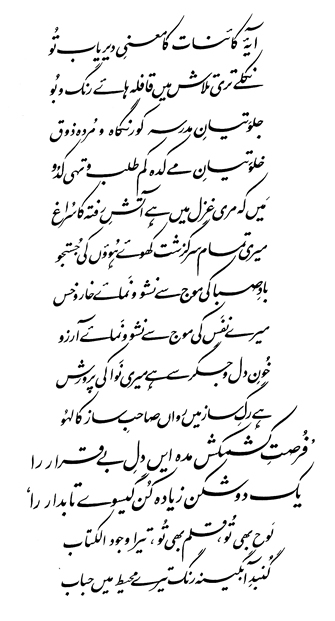 آیۂ کائنات کا معنیِ دیریاب تُو
نکلے تری تلاش میں قافلہ ہائے رنگ و بُو
جلوتیانِ مدرسہ کور نگاہ و مُردہ ذوق
خلوتیانِ مے کدہ کم طلب و تہی کدُو
مَیں کہ مری غزل میں ہے آتشِ رفتہ کا سُراغ
میری تمام سرگزشت کھوئے ہُوؤں کی جُستجو
بادِ صبا کی موج سے نشوونَمائے خار و خس
میرے نفَس کی موج سے نشوونَمائے آرزو
خُونِ دل و جگر سے ہے میری نَوا کی پرورش
ہے رگِ ساز میں رواں صاحبِ ساز کا لہُو
’فُرصتِ کشمکش مدہ ایں دلِ بے قرار را
یک دو شکن زیادہ کُن گیسوے تابدار را‘
لَوح بھی تُو، قلم بھی تُو، تیرا وجود الکتاب
گُنبدِ آبگینہ رنگ تیرے محیط میں حباب